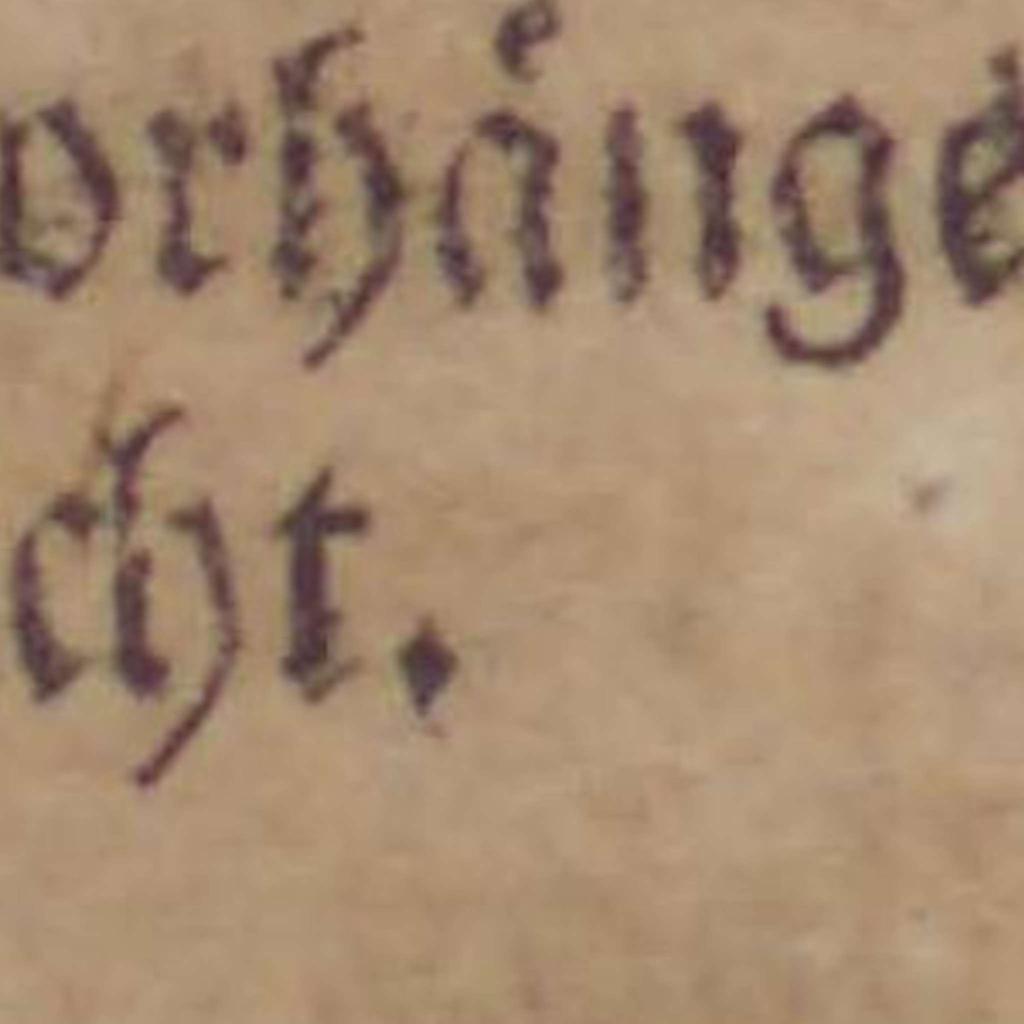 orhaͤnge
cht.